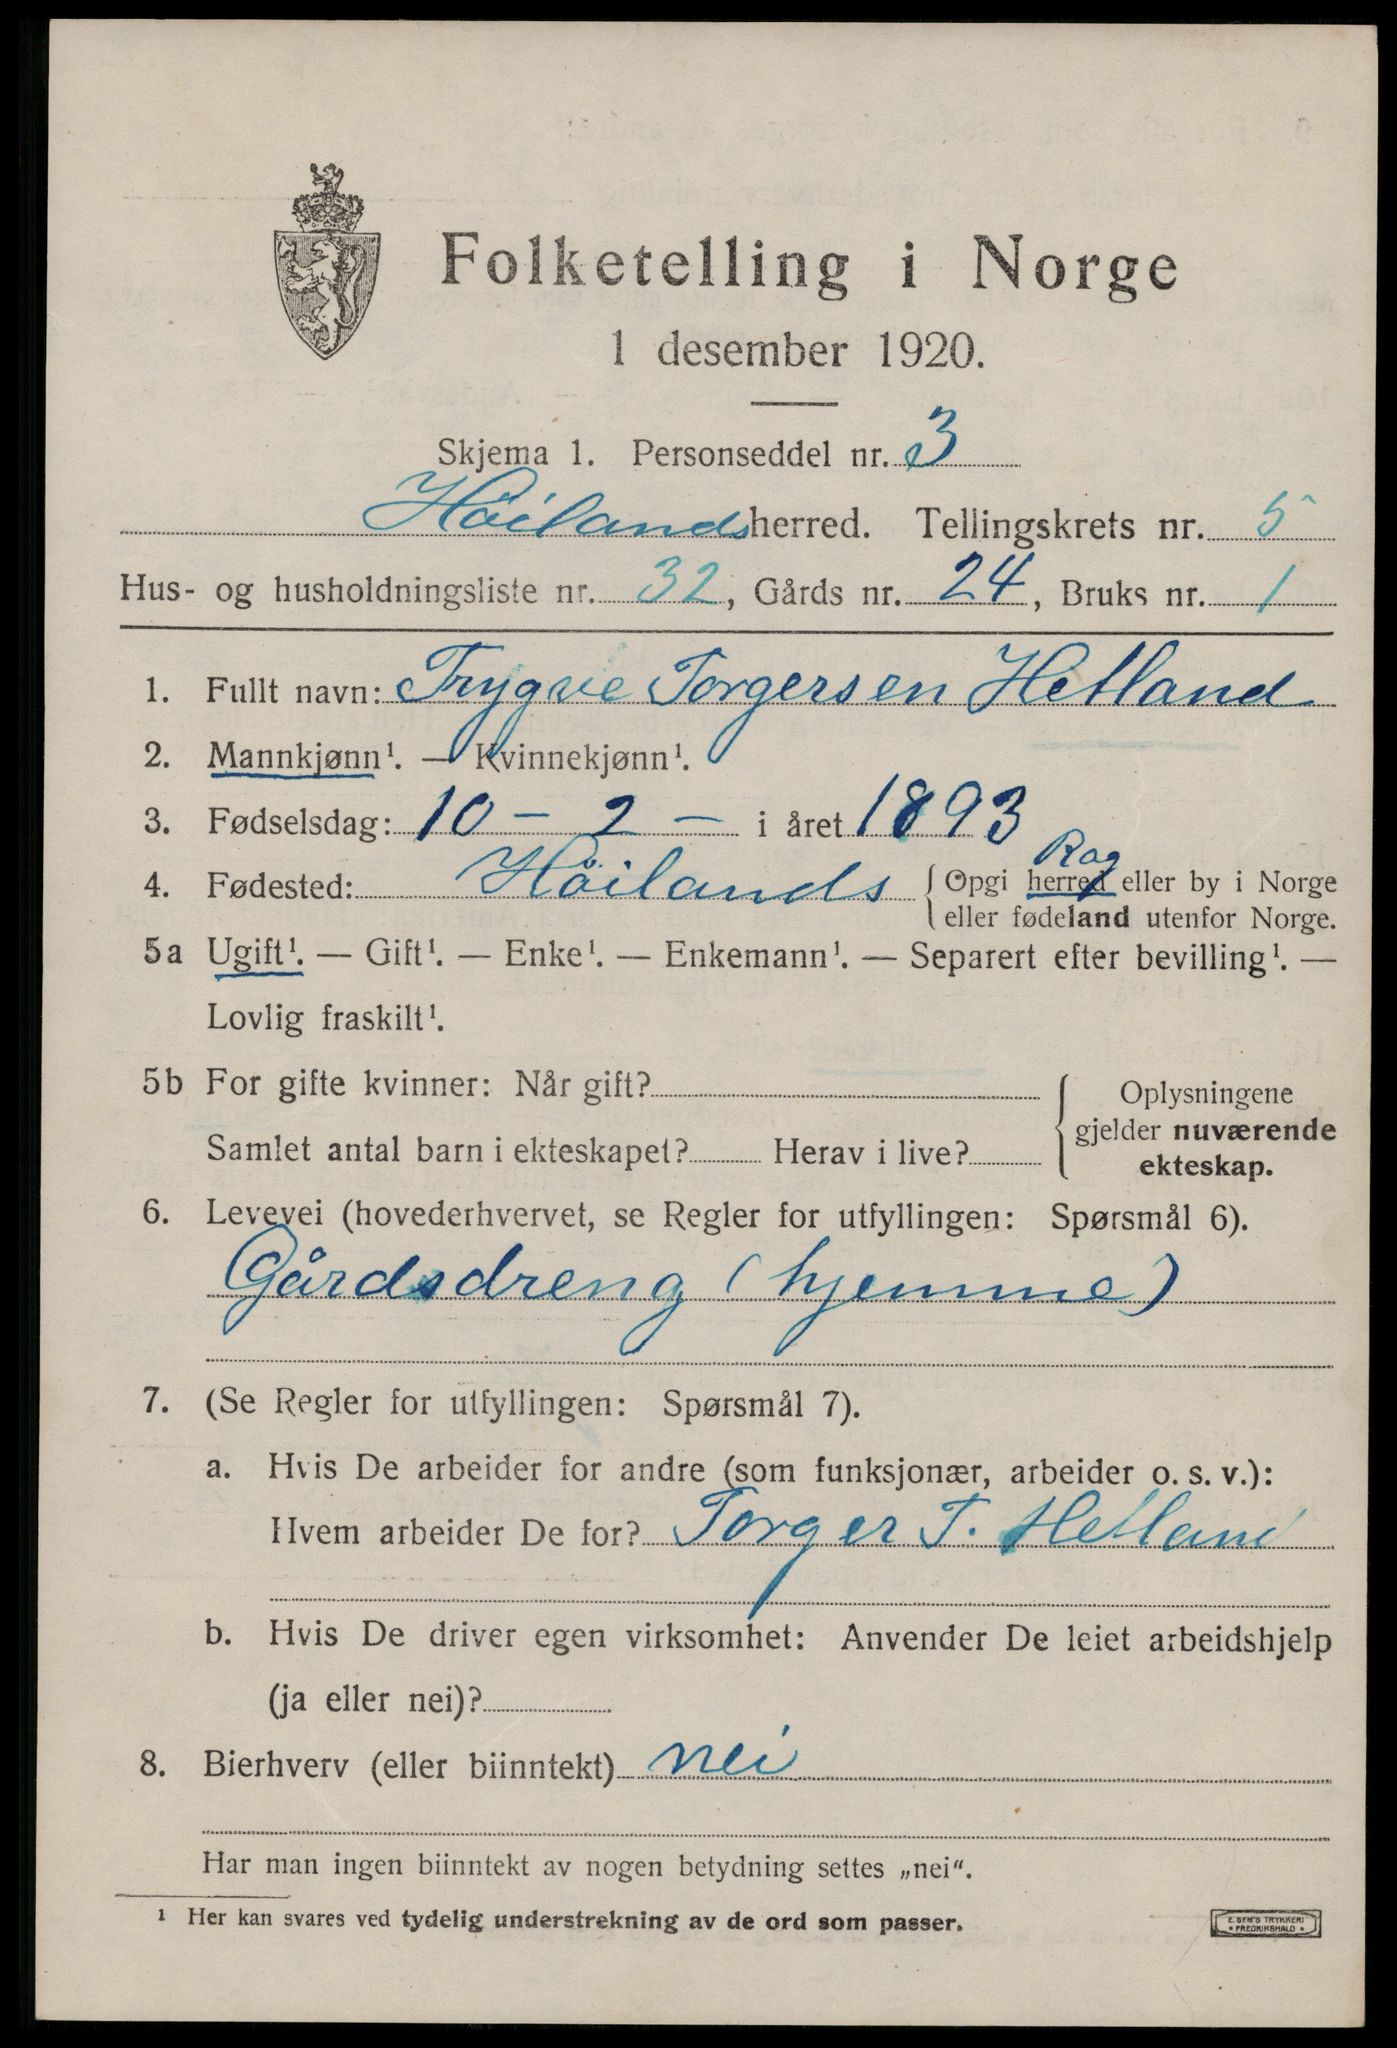 Folketelling i Norge
1 desember 1920.
Skjema 1. Personseddel nr. 3
Höilands herred. Tellingskrets nr. 5
Hus- og husholdningsliste nr. 32, Gårds nr. 24, Bruks nr. 1
1. Fullt navn: Trygve Torgersen Hetland
2. Mannkjønn¹. — Kvinnekjønn¹.
3. Fødselsdag: 10 - 2 - i året 1893
Rog
4. Fødested: Höilands { Opgi herred eller by i Norge
eller fødeland utenfor Norge.
5a Ugift¹. — Gift¹. — Enke¹. — Enkemann¹. — Separert efter bevilling¹. —
Lovlig fraskilt¹.
5b For gifte kvinner: Når gift? { Oplysningene
gjelder nuværende
Samlet antal barn i ekteskapet? Herav i live?
ekteskap.
6. Levevei (hovederhvervet, se Regler for utfyllingen: Spørsmål 6).
Gårdsdreng (hjemme)
7. (Se Regler for utfyllingen: Spørsmål 7).
a. Hvis De arbeider for andre (som funksjonær, arbeider o. s. v.):
Hvem arbeider De for? Torger T. Hetland
b. Hvis De driver egen virksomhet: Anvender De leiet arbeidshjelp
(ja eller nei)?
8. Bierhverv (eller biinntekt) nei
Har man ingen biinntekt av nogen betydning settes „nei“.
¹ Her kan svares ved tydelig understrekning av de ord som passer.
E. SEM'S TRYKKERI
* FREDRIKSHALD *